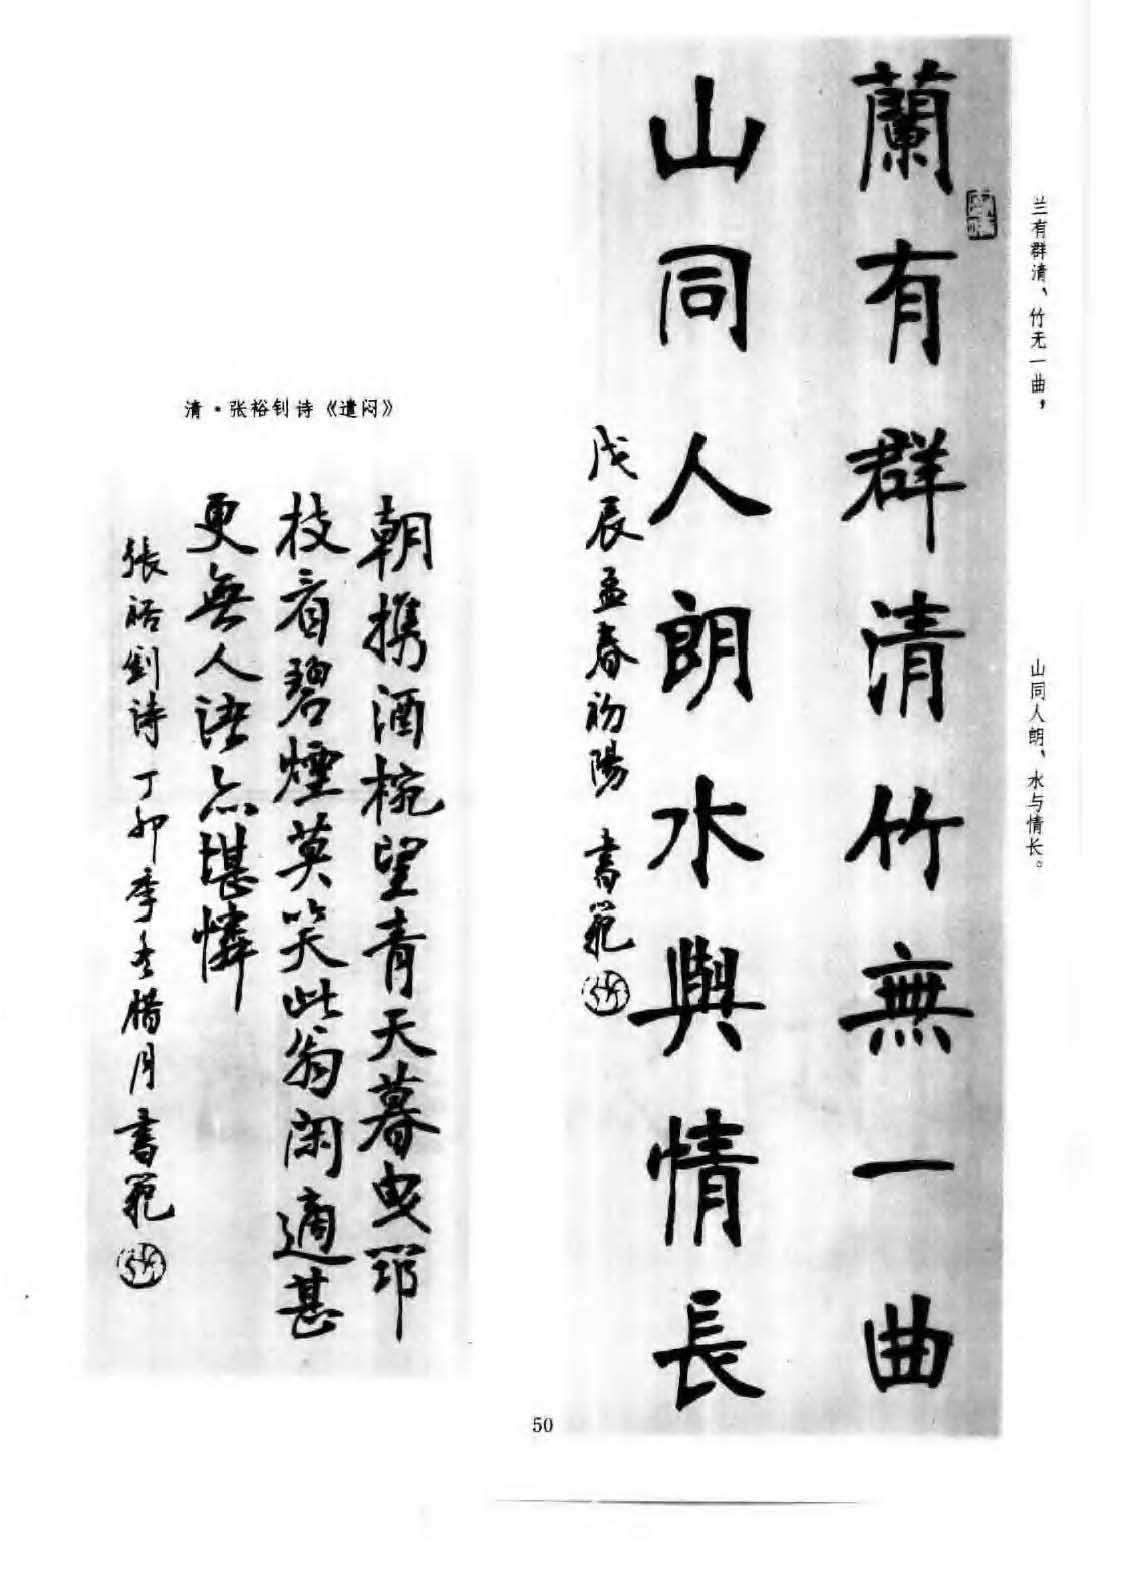 兰有群清、竹无一曲，
山同人朗、水与情长。
蘭有群清竹無一曲
山同人朗水與情長
戊辰孟春初陽 書範
清·张裕钊诗《遣闷》
朝攜酒椀望青天暮曳邛
枝看碧煙莫笑此翁閑適甚
更無人語亦堪憐
張裕釗詩丁卯季冬腊月書範
50